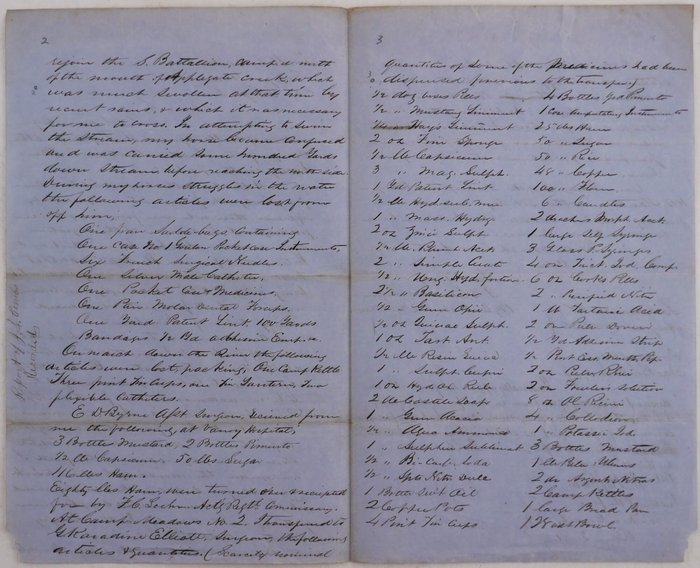 2
rejoin the S. Battallion, camped north
of the mouth of Applegate creek, which
was much swollen at that time by
recent rains, & which it was necessary
for me to cross. In attempting to swim
the Stream, my horse became confused
and was carried some hundred yards
down Stream before reaching the north side.
During my horses struggles in the water
the following articles were lost from
off him,
One pair Saddle-bags containing
One Case No 1 Pocket Case Instruments,
Six French Surgical Needles.
One Silver Male Catheter,
One Pocket Case Medicines.
One Pair Molar dental Forceps.
One Yard Patent Lint. 100 Yards
Bandages ½ Yd adhesive Emp.
On march down the River the following
articles were lost, packing, One Camp Kettle
Three pint Tin Cups, one Tin Lantern, Two
flexible Catheters.
E D Byrne Asst Surgeon, received from
me the following, at Vanoy Hospital;
3 Bottles Mustard 2 Bottles Pimento
½ lb Capsicum. 50 lbs Sugar
lbs Ham.
Eighty lbs Ham, were turned over & receipted
for by Actg Regtl Commissary.
At Camp Meadows No. 2. Transferred to
Elliott, Surgeon, the following
articles & quantities. (Scarcely
3
quantities of some of the Medicines had been
dispensed previous to the transfer)
½ doz Pills
4 Bottles Pimento
½ " Mustang Liniment
1 Case Amputating Instruments
Hays Liniment
25 lbs Ham
2 oz Fine Sponge
50 " Sugar
½ lb Capsicum
50 " Rice
3 " Mag. Sulph.
48 " Coffee
1 Yd Patent Lint
100 " Flour
½ lb Hyd. sub. mur
6 " Candles
1 " Mass. Hydrg
2 drachms Morph. Acet.
2 oz Zinci Sulph
1 large Self Syringe
½ lb Plumb Acet
3 Glass P. Syringes
2 " Simple Cerate
4 oz Tinct. Iod. Comp
½ " Ung. Hyd. fortior
6 oz Cooks Pills
2½ " Basilicon
2 " Purified Nitre
½ " Gum Opii
1 lb Tartaric Acid
½ oz Quiniae Sulph.
2 oz Pulv Doveri
1 oz Tart Ant
½ Yd Adhesive Strip
½ lb Resin
½
1 " Sulph Cupri
2 oz Pulv Rhei
1 oz Hyd Ox Rub
2 oz Fowlers Solution
2 lb Castile Soap
8 oz Ol Ricini
1 " Gum Acacia
4 " Collodion
½ " Aqua Ammonia
1 " Potassii Iod.
1 " Sulphur Sublimat
3 Bottles Mustard
½ " Bi-Carb. Soda
1 lb Pulv Ulmus
½ " Spts Nitre Dulc
2 dr Argenti Nitras
1 Bottle Oil
2 Camp Kettles
2 Coffee Pots
1 large Bread Pan
4 Pint Tin Cups
1 Bowl